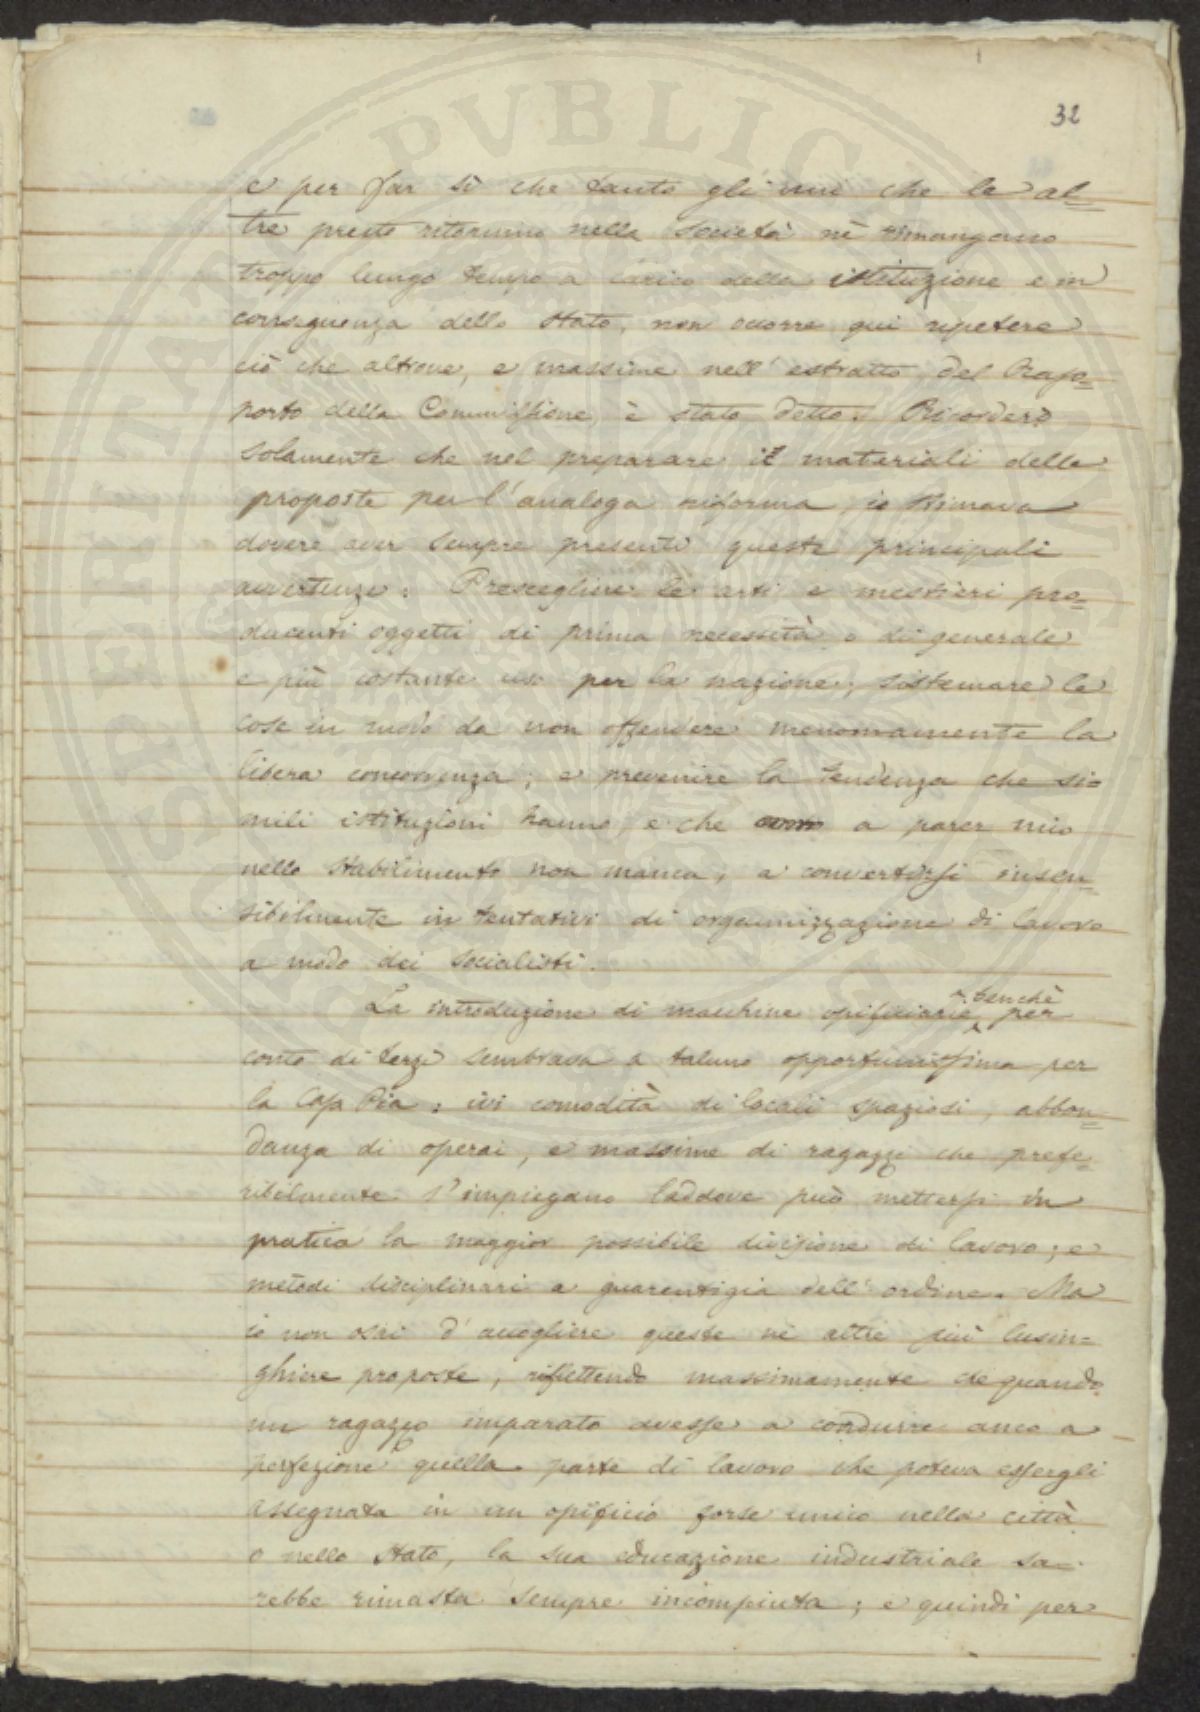 32
e per far sì che tanto gli uni che le al=
tre presto ritornino nella società nè rimangano
troppo lungo tempo a carico della istituzione e in
conseguenza dello Stato, non occorre qui ripetere
ciò che altrove, e massime nell'estratto del Rap=
porto della Commissione, è stato detto. Ricorderò
solamente che nel preparare i materiali delle
proposte per l'analoga riforma io stimava
dovere aver sempre presenti queste principali
avvertenze: Prescegliere le arti e mestieri pro=
ducenti oggetti di prima necessità o di generale
e più costante uso per la nazione; sistemare le
cose in modo da non offendere menomamente la
libera concorrenza; e prevenire la tendenza che si=
mili istituzioni hanno, e che a parer mio
nello Stabilimento non manca, a convertirsi insen=
sibilmente in tentativi di organizzazione di lavoro
a modo dei socialisti.
La introduzione di macchine opificiarie, benchè per
conto di terzi sembrava a taluno opportunissima per
la Casa Pia: ivi comodità di locali spaziosi, abbon=
danza di operai, e massime di ragazzi che prefe=
ribilmente s'impiegano laddove può mettersi in
pratica la maggior possibile divisione di lavoro; e
metodi disciplinari a guarentigia dell'ordine. Ma
io non osai d'accogliere queste nè altre più lusin=
ghiere proposte, riflettendo massimamente che quando
un ragazzo imparato avesse a condurre anco a
perfezione quella parte di lavoro che poteva essergli
assegnata in un opificio forse unico nella città
o nello Stato, la sua educazione industriale sa=
rebbe rimasta sempre incompiuta; e quindi per